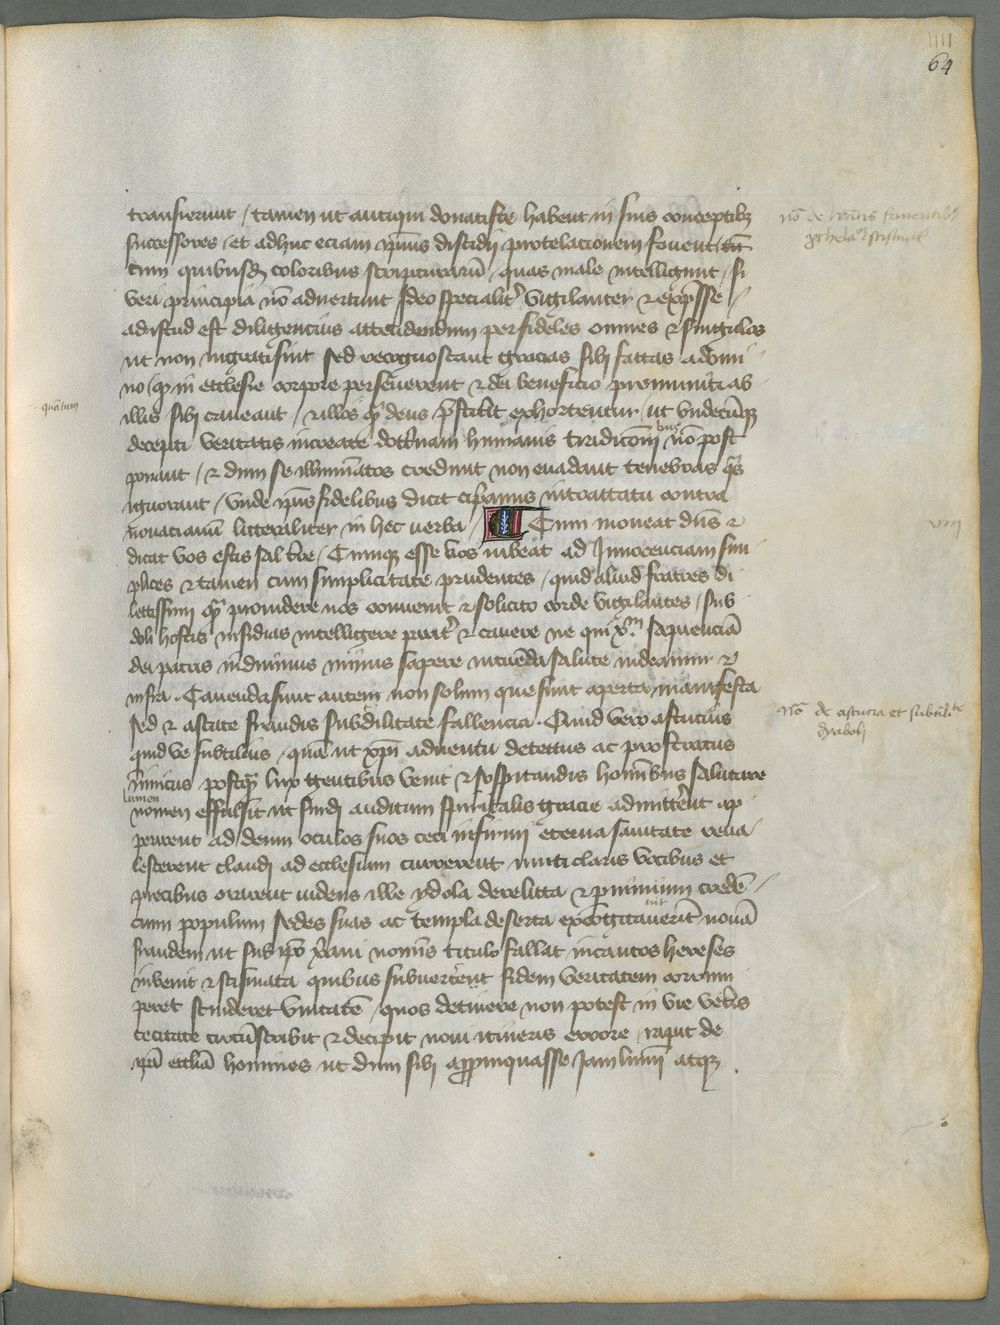 IIII
64
transierunt / tamen ut antiqui donatiste habent in suis conceptibꝫ
successores / et adhuc eciam ipsius discidii protelacionem fovent / etᵐ
cum quibusdā coloribus scripturarū / quas male intelligunt / si
veri principia nō advertunt Ideo specialit' vigilanter & exp̄sse /
ad istud est diligencius attendendum per fideles omnes & singulos
ut non ingrati sint sed recognoscant gracias sibi factas a domi
no / qꝫ in ecclesie corpore perseverent & dei beneficio premuniti ab
illis sibi caveant / & illos q̄s deus p̄stitit exhortentur / ut undecūqꝫ
decepti veritatis increate doct'nam humanis tradicionibus nō post
ponant / & dum se illuminatos credunt non evadant tenebras q̄s
ignorant / Unde ipsius fidelibus dicit ciprianus in tractatu contra
novacianū litteraliter in hec verba / Cum moneat dn̄s &
dicat vos estis sal t're / Cumqꝫ esse vos iubeat ad Innocenciam sim
plices & tamen cum simplicitate prudentes / quid aliud fratres di
lectissimi q̄ providere nos convenit & solicito corde vigilantes / sub
doli hostis insidias intelligere parit' & cavere ne qui xᵐ sapienciā
dei patris induimus minus sapere in tuenda salute videamur &
infra . Cavenda sunt autem non solum que sunt aperta / manifesta
sed & astute fraudis subdilitate fallencia . Quid vero astucius
quid ve subtilius / quā ut xp̄i adventu detectus ac prostratus
inimicus postq̄ lux gentibus venit & sospitandis homībus salutare
lumen
nomen effulsit ut surdi auditum spiritalis gracie admitterēt ap
perirent ad deum oculos suos ceci infirmi eterna sanitate reva /
lescerent claudi ad ecclesiam currerent muti claris vocibus et
precibus orarent videns ille ydola derelicta & p nimium credē /
cium populum sedes suas ac templa deserta excogitaverīt novā
fraudem ut sub ipō xp̄iani nomīs titulo fallat incautos hereses
invenit & scismata quibus subverteret fidem veritatem corrum
peret scinderet unitatē / quos detinere non potest in vie vet'is
cecitate circūscribit & decipit novi itineris errore / rapit de
ip̄a eccl̄ia homines ut dum sibi app̄ropinquasse Iam lumī atqꝫ .
quātum
nō de
nō de astucia et subtilitᵉ
dyaboli